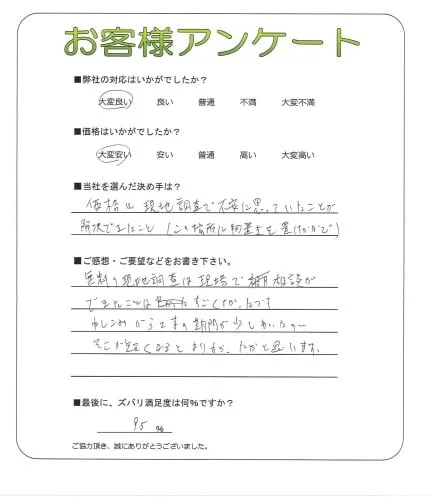 お客様アンケート
■弊社の対応はいかがでしたか？
大変良い 良い 普通 不満 大変不満
■価格はいかがでしたか？
大変安い 安い 普通 高い 大変高い
■当社を選んだ決め手は？
価格と現地調査で不安に思っていたことが
解決できたこと（この場所に物置を置けるかで）
■ご感想・ご要望などをお書き下さい。
無料の現地調査は現場で相談が
できたことはすごくよかったです
申しこみから工事の期間が少しあいたので
そこが短くなるとよりよかったかと思います。
■最後に、ズバリ満足度は何％ですか？
95 ％
ご協力頂き、誠にありがとうございました。